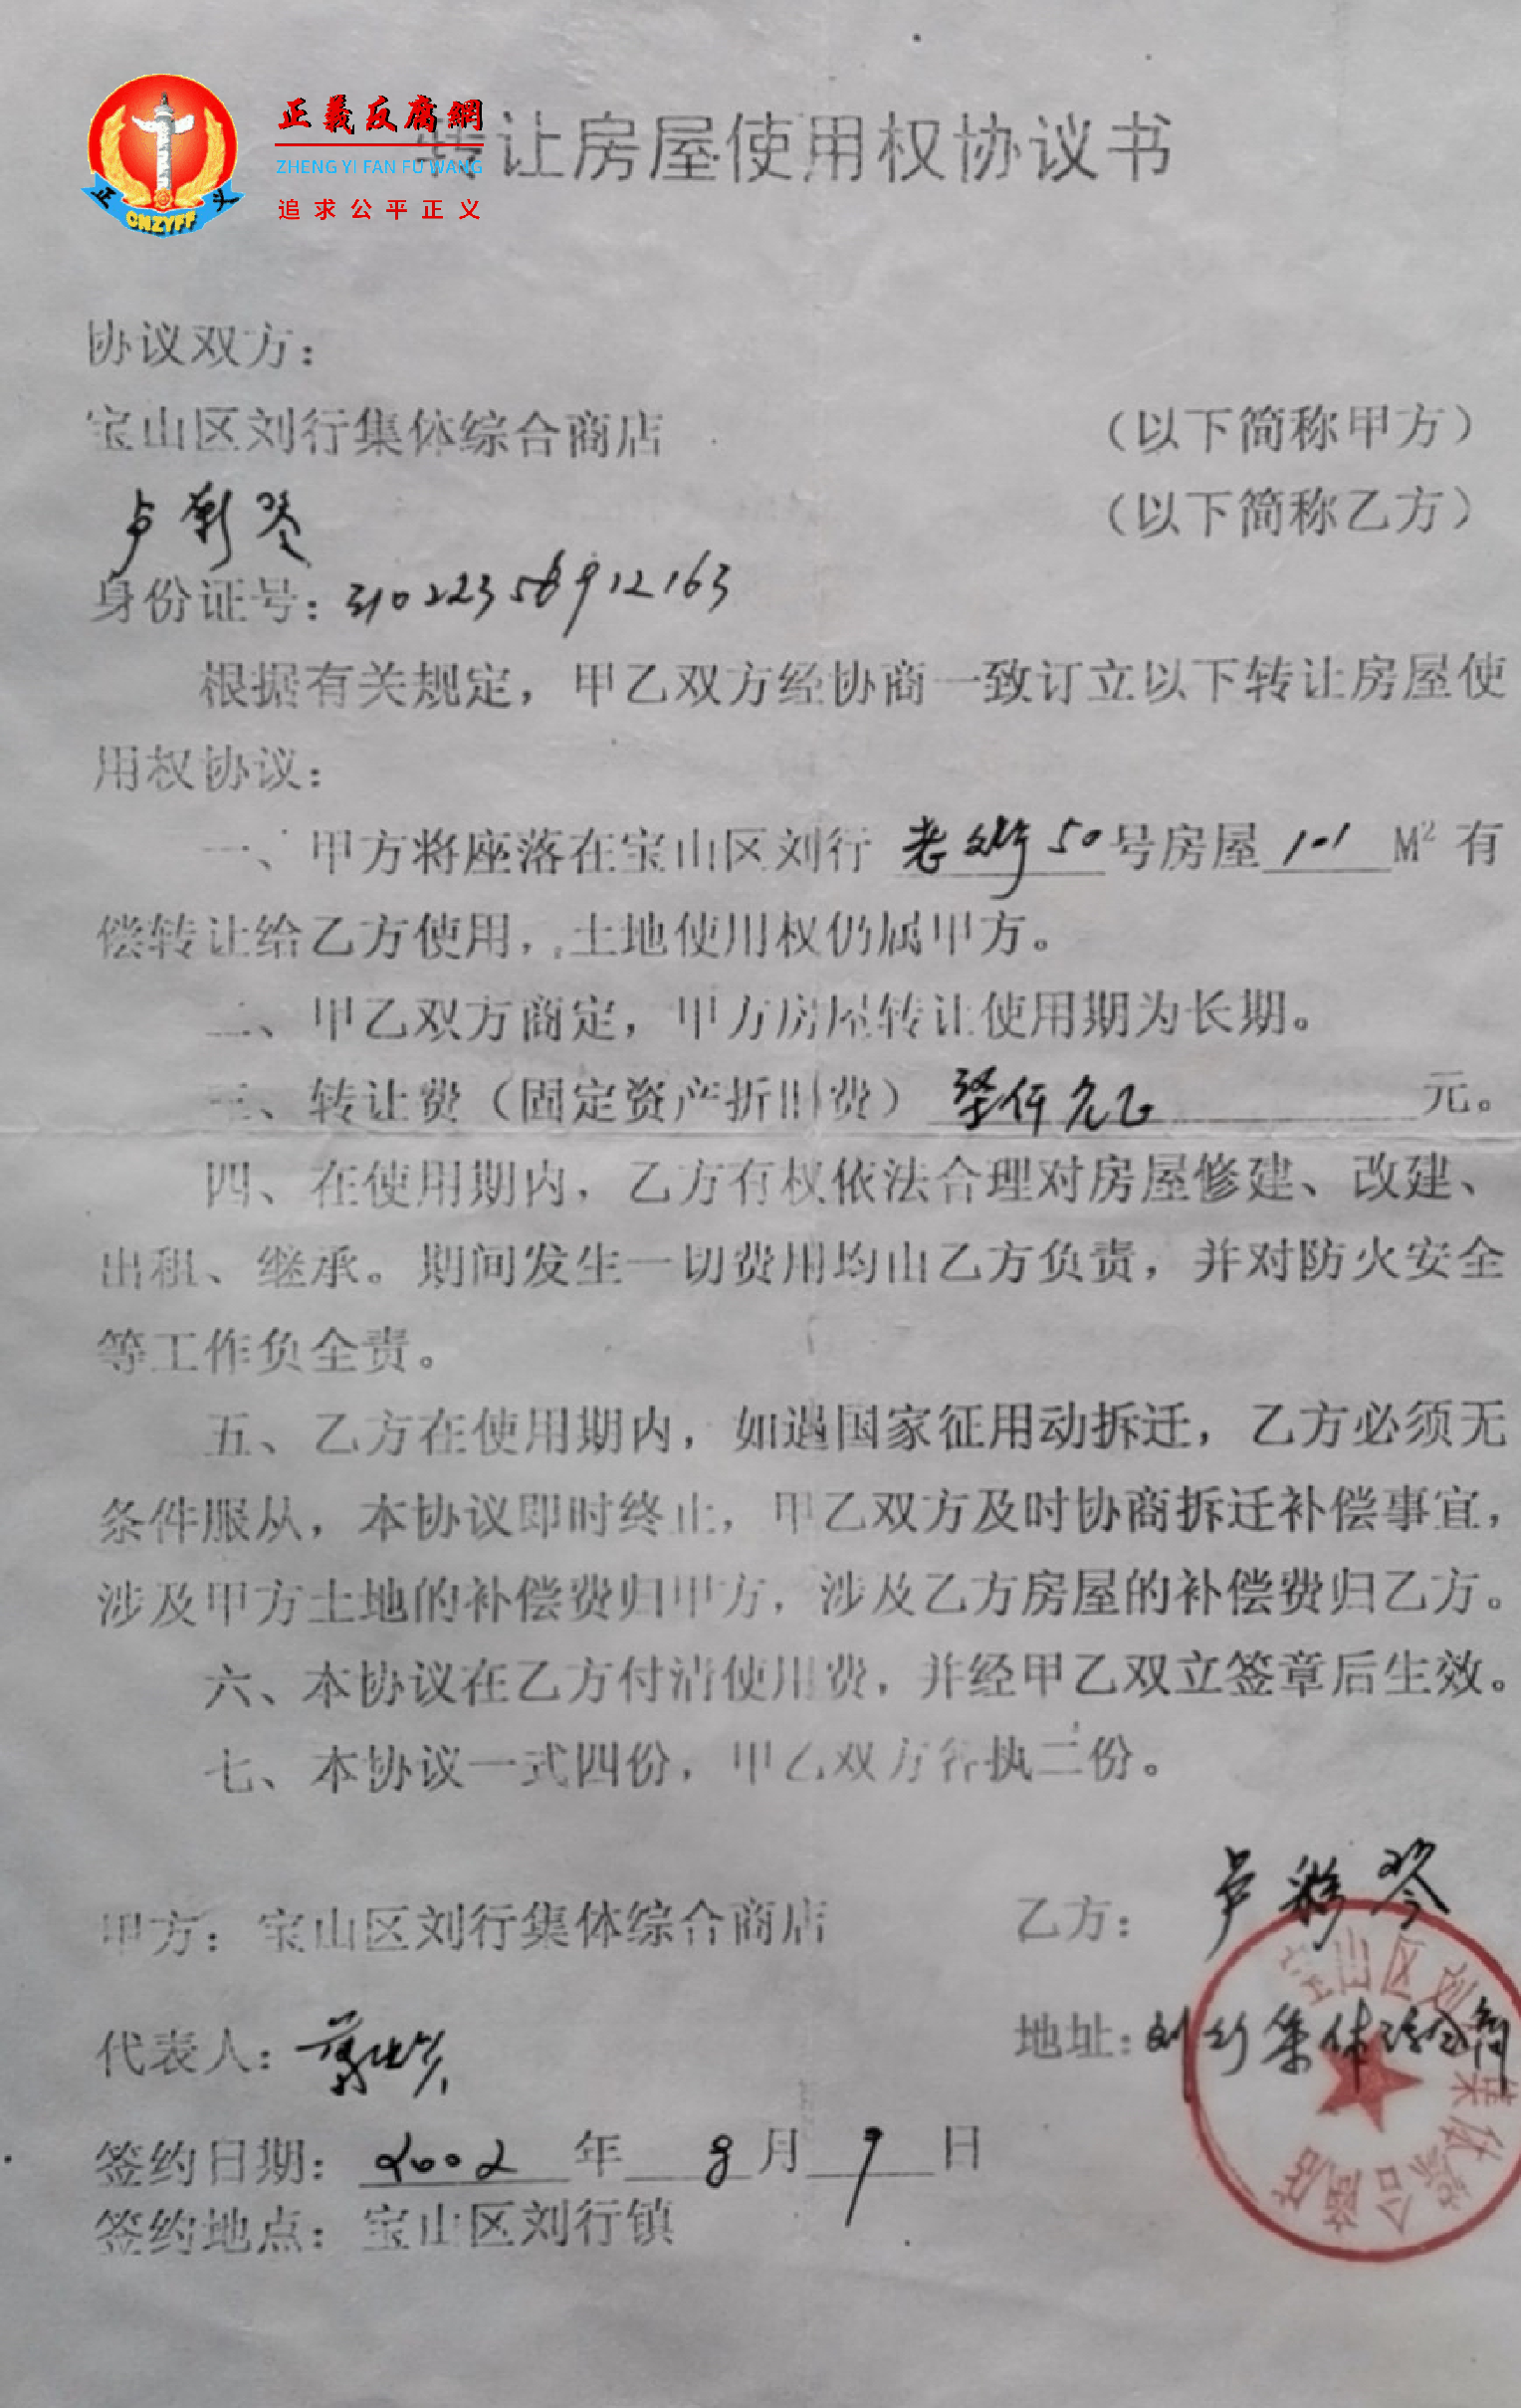 正義反腐網
ZHENG YI FAN FU WANG
追求公平正义
正义
CNZYFF
转让房屋使用权协议书
协议双方:
宝山区刘行集体综合商店 (以下简称甲方)
卢彩琴 (以下简称乙方)
身份证号:
根据有关规定,甲乙双方经协商一致订立以下转让房屋使
用权协议:
一、甲方将座落在宝山区刘行 老街50号房屋 101 M² 有
偿转让给乙方使用,土地使用权仍属甲方。
二、甲乙双方商定,甲方房屋转让使用期为长期。
三、转让费(固定资产折旧费) 元。
四、在使用期内,乙方有权依法合理对房屋修建、改建、
出租、继承。期间发生一切费用均由乙方负责,并对防火安全
等工作负全责。
五、乙方在使用期内,如遇国家征用动拆迁,乙方必须无
条件服从,本协议即时终止,甲乙双方及时协商拆迁补偿事宜,
涉及甲方土地的补偿费归甲方,涉及乙方房屋的补偿费归乙方。
六、本协议在乙方付清使用费,并经甲乙双立签章后生效。
七、本协议一式四份,甲乙双方各执二份。
甲方:宝山区刘行集体综合商店 乙方: 卢彩琴
代表人: 地址:刘行集体综合商
签约日期: 2002 年 8 月 9 日
签约地点:宝山区刘行镇
宝山区刘行集体综合商店